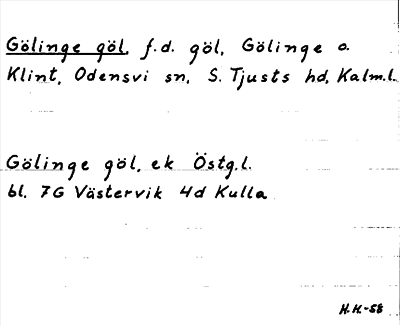 Gölinge göl, f.d. göl, Gölinge o.
Klint, Odensvi sn, S. Tjusts hd, Kalm.l.
Gölinge göl, ek Östg.l.
bl. 7G Västervik 4d Kulla
H.H.-58